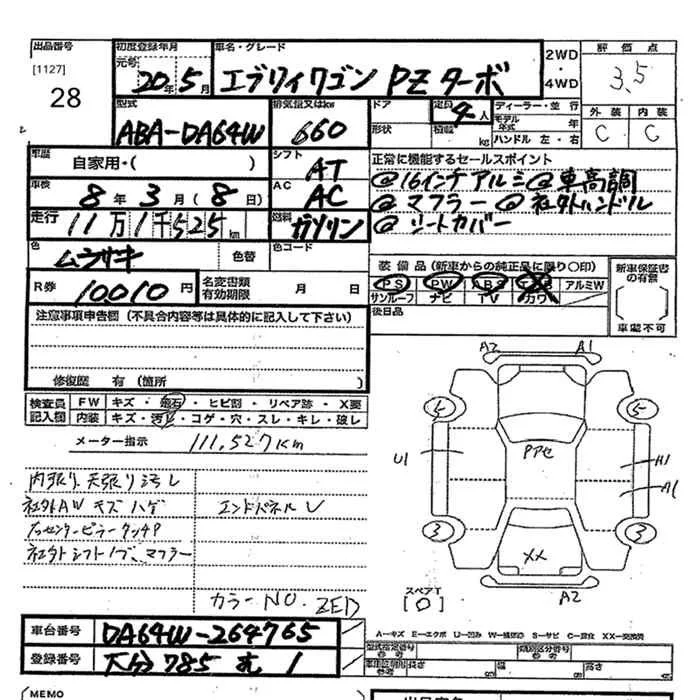 出品番号 初度登録年月 車名・グレード 2WD 評価点
[1127] 元号 20年5月 エブリィワゴン PZターボ ・ 3.5
28 4WD
型式 排気量又はkw ドア 定員 4人 ディーラー・並行 外装 内装
ABA-DA64W 660 形状 積載 kg モデル年式 年 C C
ハンドル 左・右
車歴 自家用・( ) シフト AT 正常に機能するセールスポイント
車検 8年3月(8日) AC AC @16インチアルミ@車高調
走行 11万1千525km 燃料 ガソリン @マフラー@社外ハンドル
@シートカバー
色 ムラサキ 色替 色コード
装備品(新車からの純正品に限り○印) 新車保証書の有無
R券 10010円 名変書類有効期限 月 日 PS PW ABS アルミW
サンルーフ ナビ TV カワ
後日品 車載不可
注意事項申告欄(不具合内容等は具体的に記入して下さい)
修復歴 有(箇所 )
検査員記入欄 FW キズ・飛石・ヒビ割・リペア跡・X要
内装 キズ・汚レ・コゲ・穴・スレ・キレ・破レ
メーター指示 111,527Km
A2 A1
5 5
U1 Pアセ A1
3 3
XX
A2
内張り、天張り汚レ
社外AW キズ ハゲ エンドパネルU
社外シフトノブ、マフラー
カラーNO. ZED
スペアT
[0]
車台番号 DA64W-264765
登録番号 大分 785 む 1
A-キズ E-エクボ U-凹ミ W-補修跡 S-サビ C-腐食 XX-交換済
型式指定番号 参考 類別区分番号 参考
長さ 幅 高さ
(MEMO